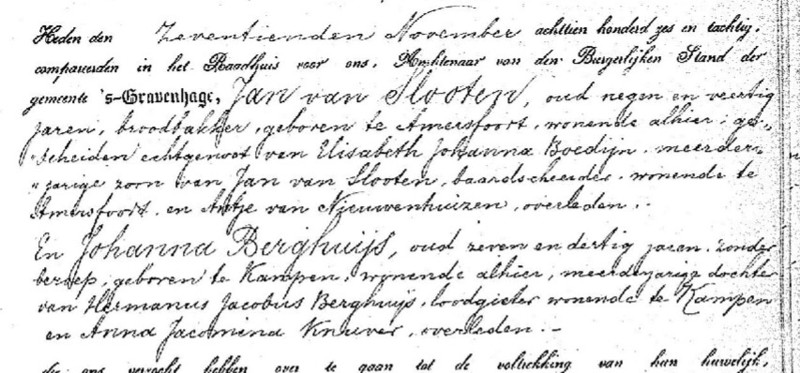 Heden den Zeventienden November achttien honderd zes en tachtig,
compareerden in het Raadhuis voor ons, Ambtenaar van den Burgerlijken Stand der
gemeente 's-Gravenhage, Jan van Slooten, oud negen en veertig
jaren, broodbakker, geboren te Amersfoort, wonende alhier, ge-
scheiden echtgenoot van Elisabeth Johanna Boedijn, meerder-
jarige zoon van Jan van Slooten, baardscheerder, wonende te
Amersfoort, en Antje van Nieuwenhuizen, overleden. -
En Johanna Berghuijs, oud zeven en dertig jaren, zonder
beroep, geboren te Kampen, wonende alhier, meerderjarige dochter
van Hermanus Jacobus Berghuijs, loodgieter wonende te Kampen
en Anna Jacomena Knuver, overleden. -
die ons verzocht hebben over te gaan tot de voltrekking van hun huwelijk,